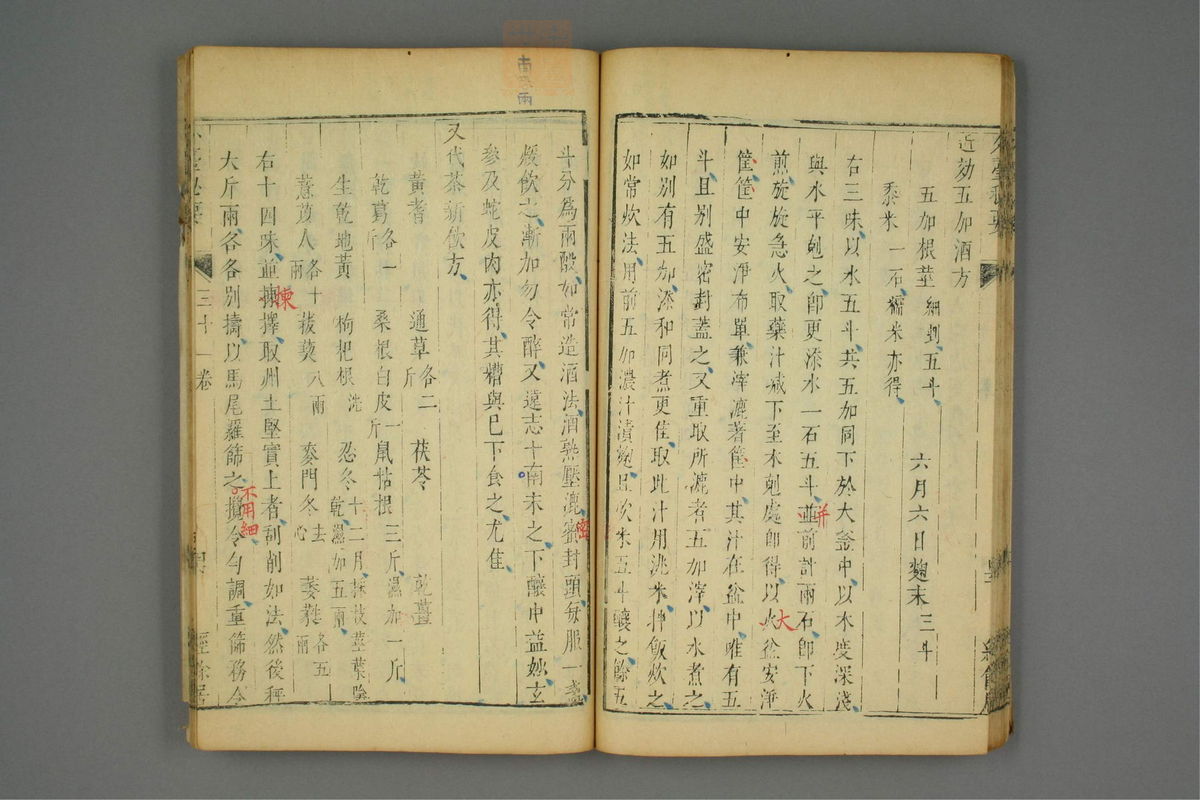 近効五加酒方
五加根莖細剉五斗 六月六日麴末三斗
黍米一石糯米亦得
右三味以水五斗共五加同下於大釜中以木度深淺
與水平剋之即更添水一石五斗並前計兩石即下火
併
煎旋旋急火取藥汁減下至木剋處即得以火盆安淨
大
筐筐中安淨布單兼滓漉著筐中其汁在盆中唯有五
斗且别盛密封蓋之又重取所漉者五加滓以水煮之
如别有五加添和同煮更佳取此汁用洮米拌飯炊之
如常炊法用前五加濃汁漬麴且炊米五斗釀之餘五
斗分爲兩酘如常造酒法酒熟壓漉密封頭每服一盞
密
煖飲之漸加勿令醉又遠志十兩末之下釀中益妙玄
參及蛇皮肉亦得其糟與巳下食之尤佳
又代茶新飲方
黃耆 通草各二斤 茯苓 乾薑
乾葛各一斤 桑根白皮一斤 鼠粘根三斤濕加一斤
生乾地黃 枸杞根洗 忍冬十二月採枝莖葉陰乾濕加五兩
薏苡人各十兩 菝葜八兩 麥門冬去心 萎蕤各五兩
右十四味並揀擇取州土堅實上者刮削如法然後秤
揀
大斤兩各各别擣以馬尾羅篩之攪令勻調重篩務令
不用細
三十一卷
經餘居